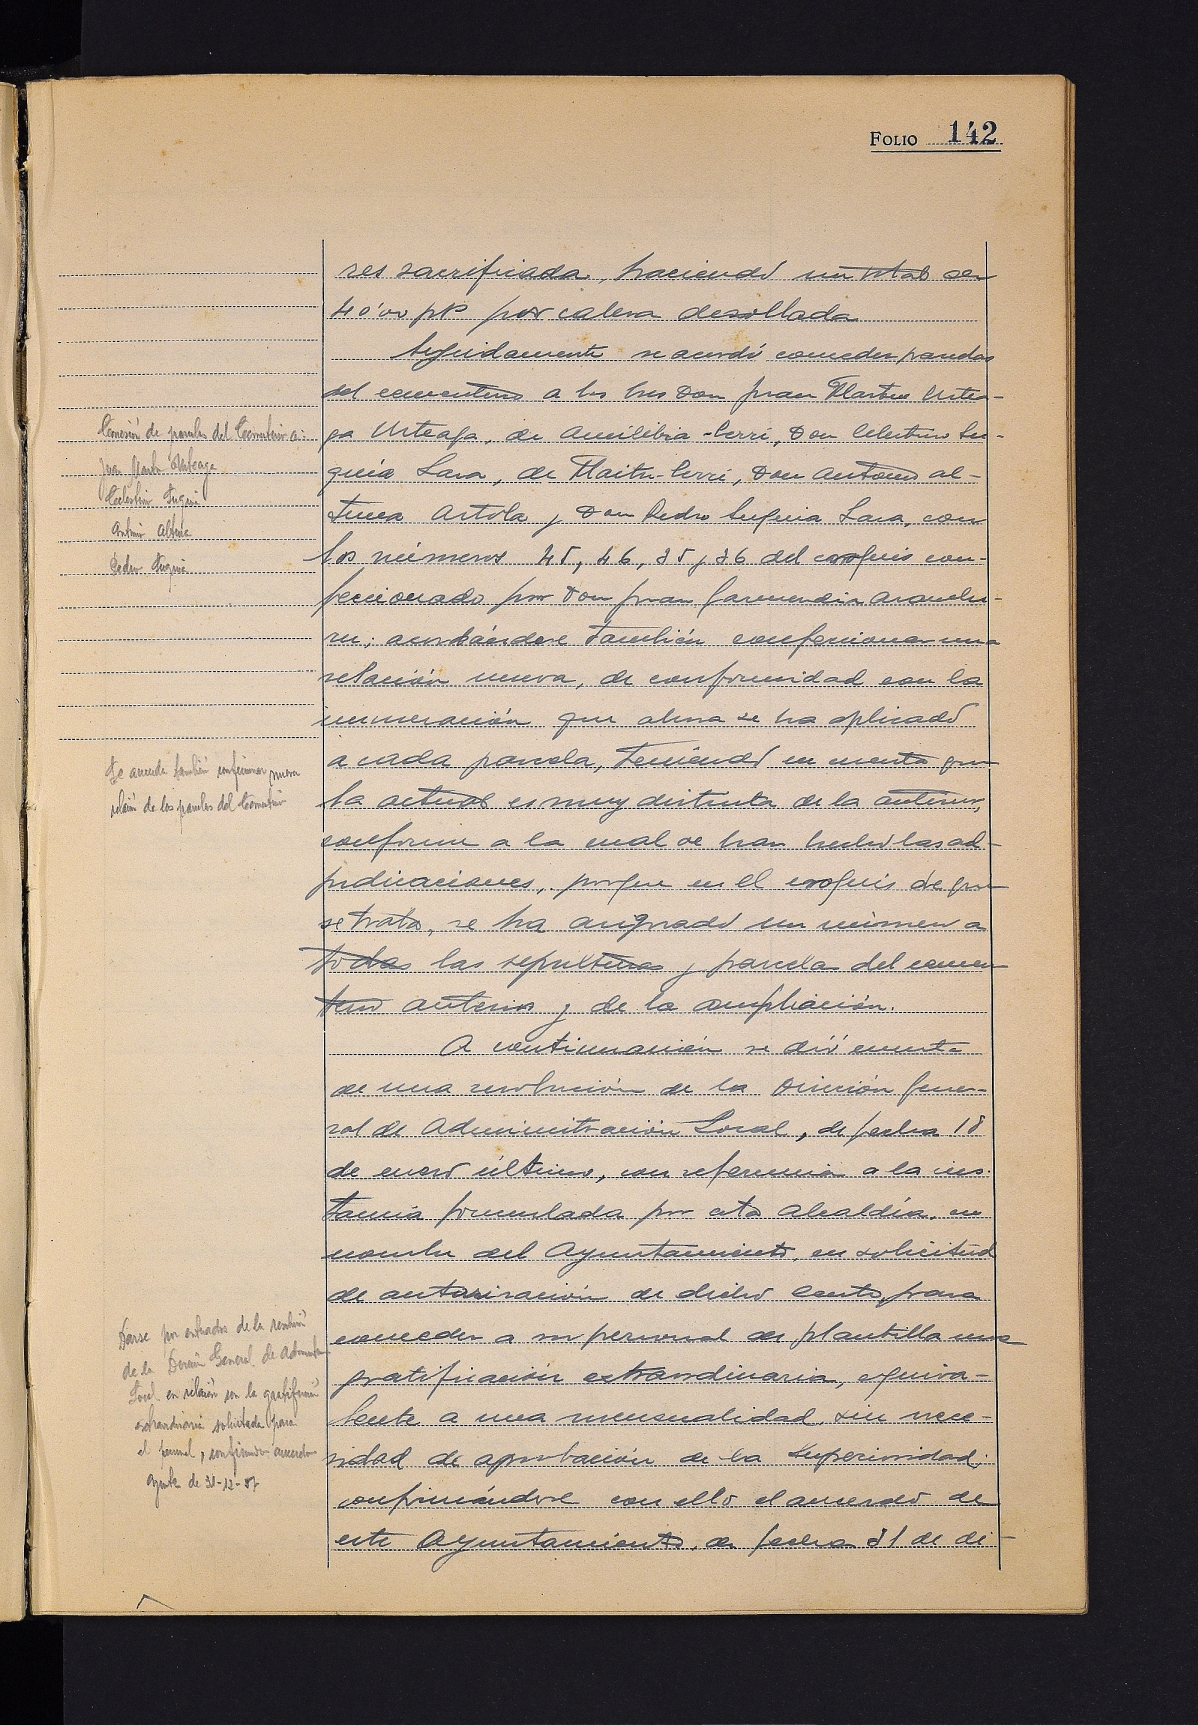 FOLIO 142
res sacrificada, haciendo un total de
40'00 pts por cabeza desollada
Seguidamente se acordó conceder parcelas
del cementerio a los Sres Don Juan Martin Urtea-
ga Urteaga, de Amilibia-berri, Don Celestino Su-
quia Lasa, de Maitu-berri, Don Antonio Al-
tuna Artola y Don Pedro Suquia Lasa, con
los números 45, 46, 35 y 36 del croquis con-
feccionado por Don Juan Garmendia Aramburu
ru; acordándose también confeccionar una
relación nueva, de conformidad con la
numeración que ahora se ha aplicado
a cada parcela, teniendo en cuenta que
la actual es muy distinta de la anterior,
conforme a la cual se han hecho las ad-
judicaciones, porque en el croquis de que
se trata, se ha asignado un número a
todas las sepulturas y parcelas del cemen
terio anterior y de la ampliación.
A continuación se dió cuenta
de una resolución de la Dirección Gene-
ral de Administración Local, de fecha 18
de enero último, con referencia a la ins-
tancia formulada por esta Alcaldía, en
nombre del Ayuntamiento, en solicitud
de autorización de dicho Centro, para
conceder a su personal de plantilla una
gratificación extraordinaria, equiva-
lente a una mensualidad, sin nece-
sidad de aprobación de la Superioridad;
confirmándose con ello el acuerdo de
este Ayuntamiento, de fecha 31 de di-
Concesión de parcelas del Cementerio a:
Juan Martin Urteaga
Celestino Suquia
Antonio Altuna
Pedro Suquia
Se acuerda también confeccionar nueva
relación de las parcelas del Cementerio
Darse por enterados de la resolución
de la Dirección General de Administra
Local en relación con la gratificación
extraordinaria solicitada para
el personal, confirmando acuerdo
Aynto de 31-12-57